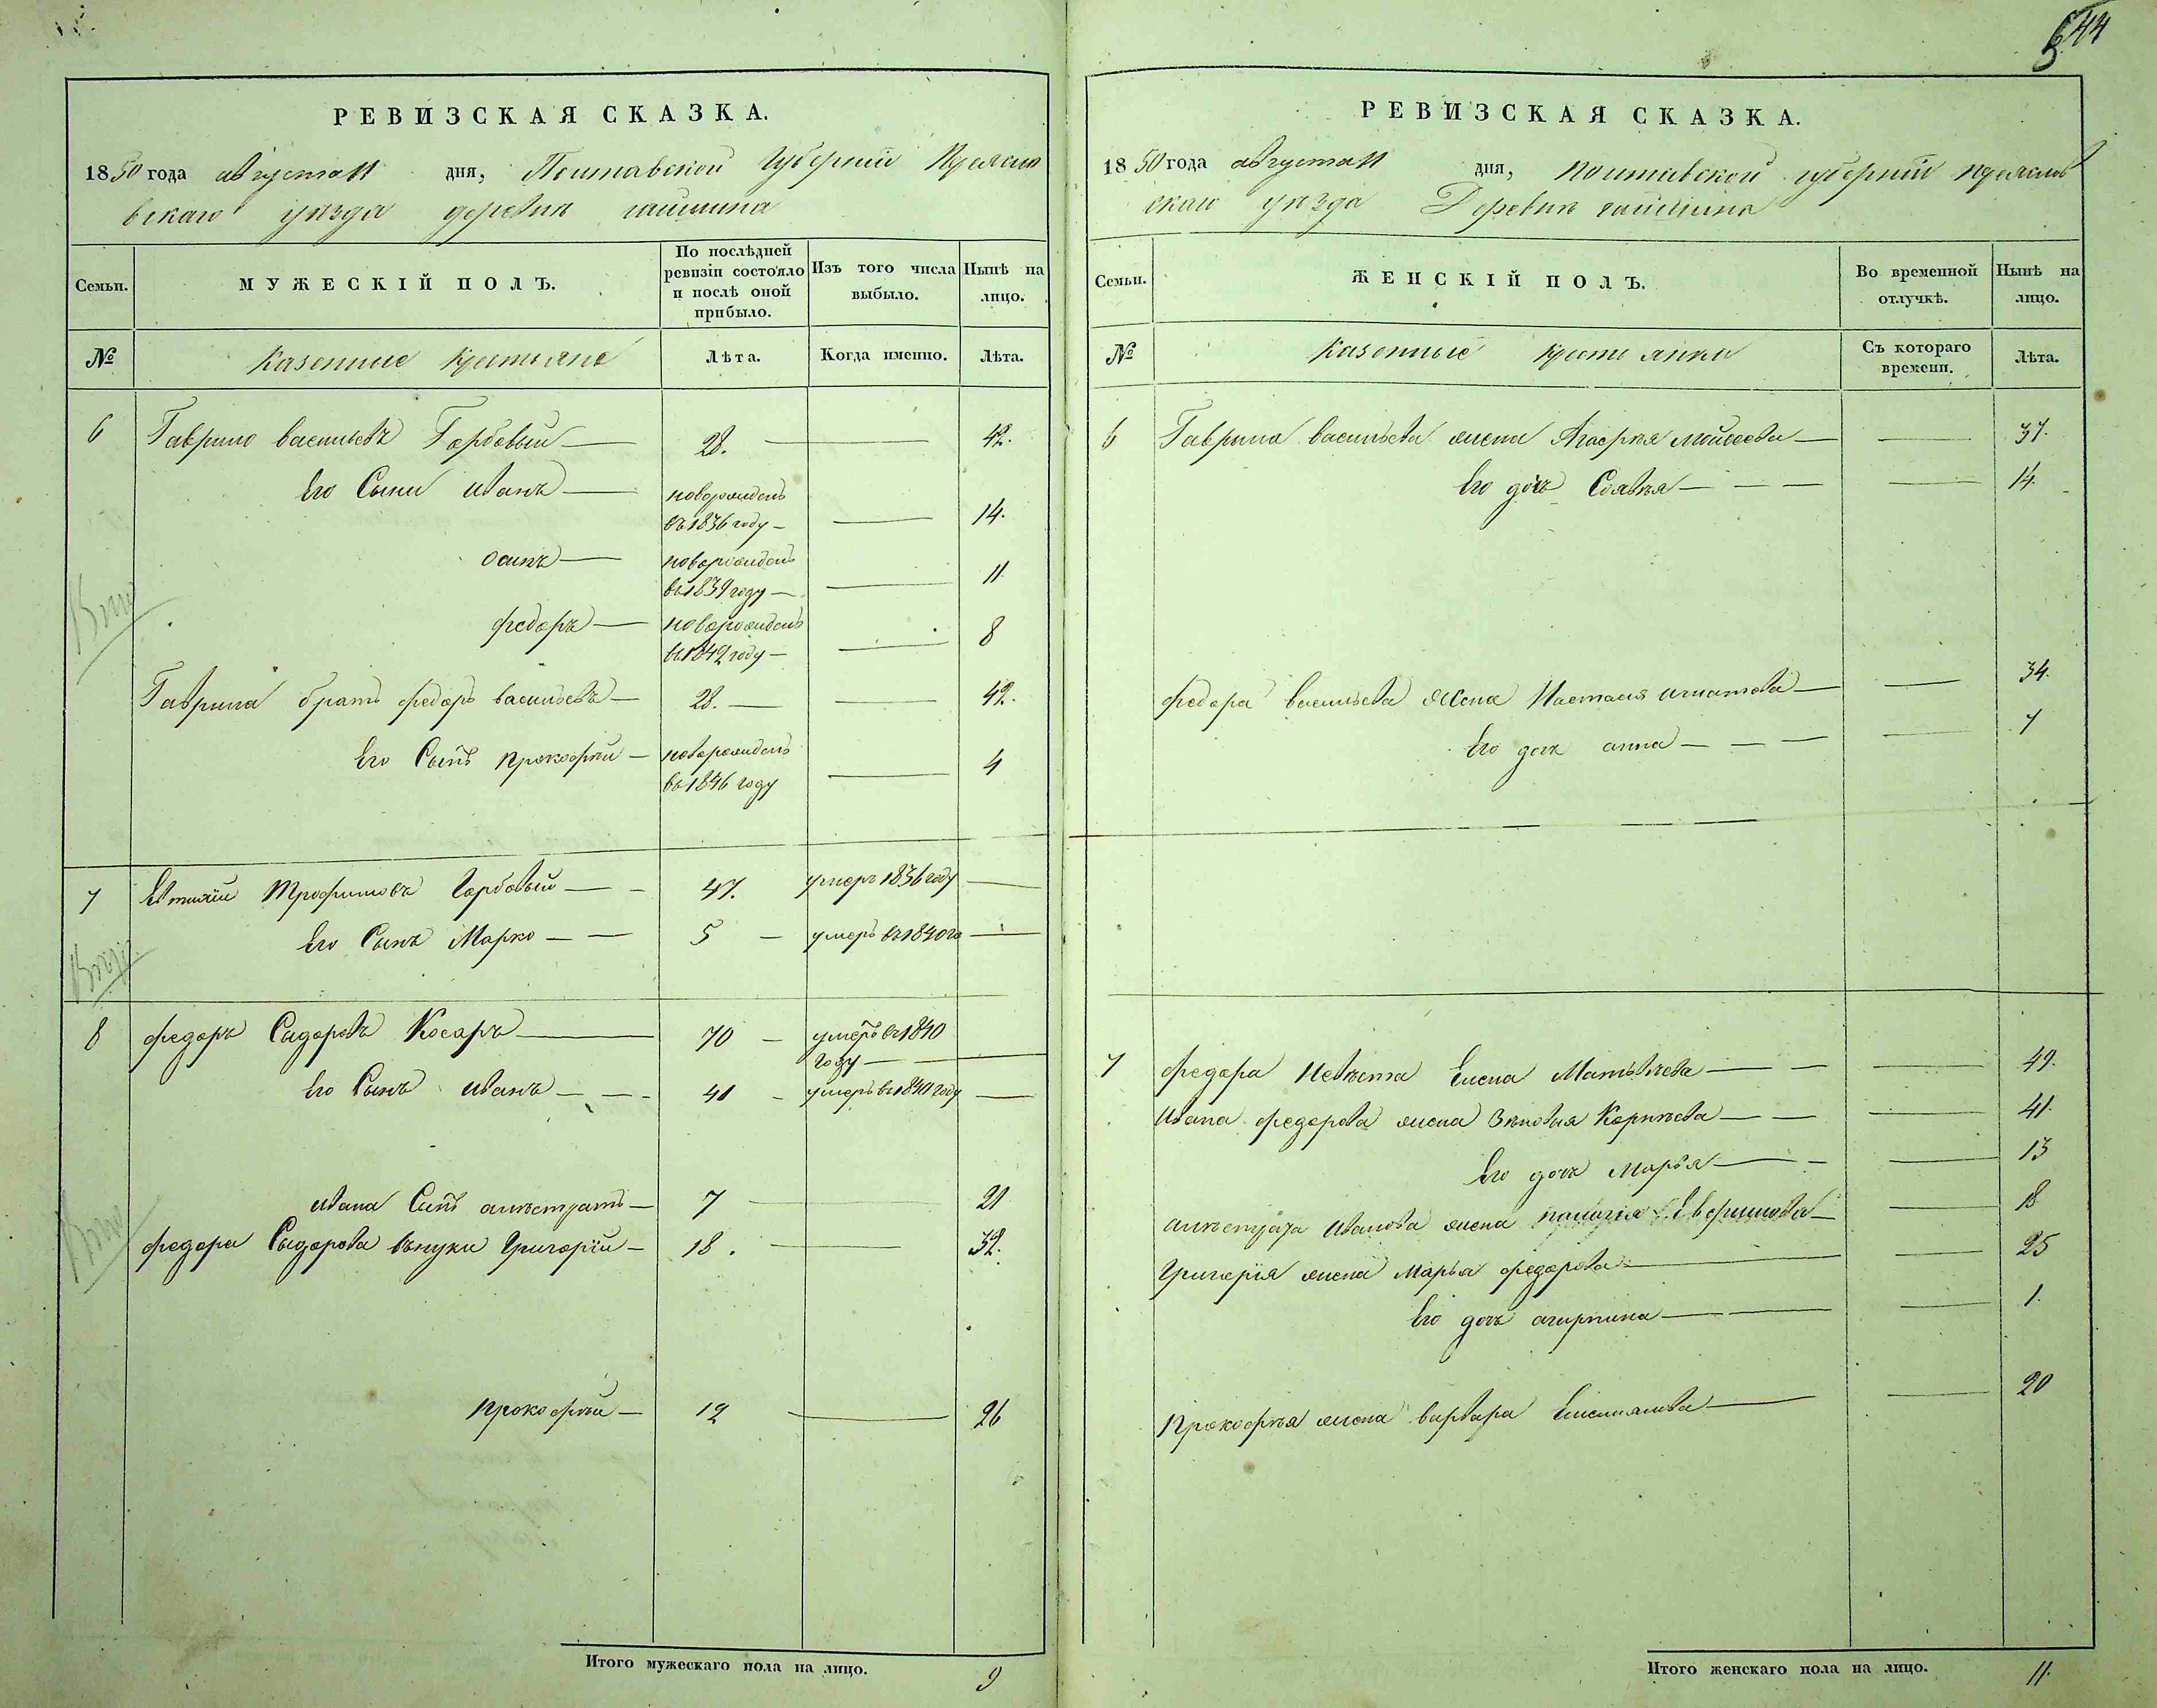 544
РЕВИЗСКАЯ СКАЗКА.
1850 года августа 11 дня, Полтавской Губерніи Переясло
вскаго уезда деревни
Семьи.
МУЖЕСКІЙ ПОЛЪ.
По послѣдней ревизіи состояло и послѣ оной прибыло.
Изъ того числа выбыло.
Нынѣ на лицо.
№
Казенные крестьяне
Лѣта.
Когда именно.
Лѣта.
6 Гаврило васильевъ Горбовый — 28. — 42.
Его Сыны иванъ — новорожденъ
въ 1836 году — — 14.
осипъ — новорожденъ
въ 1839 году — — 11
федоръ — новорожденъ
въ 1842 году — — 8
Гаврила братъ федоръ васильевъ — 28. — — 42.
Его Сынъ прокофий — новорожденъ
въ 1846 году — 4
7 Трофимовъ Горбовый — — 47. умеръ 1836 году —
Его Сынъ Марко — — 5 — умеръ въ 1840 го —
8 федоръ Сидоровъ Косаръ — 70 — умеръ въ 1840
году — —
Его Сынъ иванъ — — — 41 — умеръ въ 1840 году —
ивана Сынъ — 7 — 21
федора Сыдорова внуки Григорій — 18. — 32.
прокофий — 12 — 26
Итого мужескаго пола на лицо. 9
РЕВИЗСКАЯ СКАЗКА.
1850 года августа 11 дня, полтавской губерніи переяслов
скаго уезда Деревни
Семьи.
ЖЕНСКІЙ ПОЛЪ.
Во временной отлучкѣ.
Нынѣ на лицо.
№
Казенные крестьянки
Съ котораго времени.
Лѣта.
6 Гаврила васильева жена мойсеева — — 37.
Его дочь — — — — 14.
федора васильева жена Настасия игнатова — — 34.
Его дочь анна — — — — 7
7 федора Невѣста Елена Матвѣева — — — 49.
ивана федорова жена Корнѣева — — — 41.
Его дочь Марья — — — 13
иванова жена — — 18
Григорія жена Марья федорова — — 25
Его дочь агирпина — — — 1.
прокофия жена варвара — — 20
Итого женскаго пола на лицо. 11.